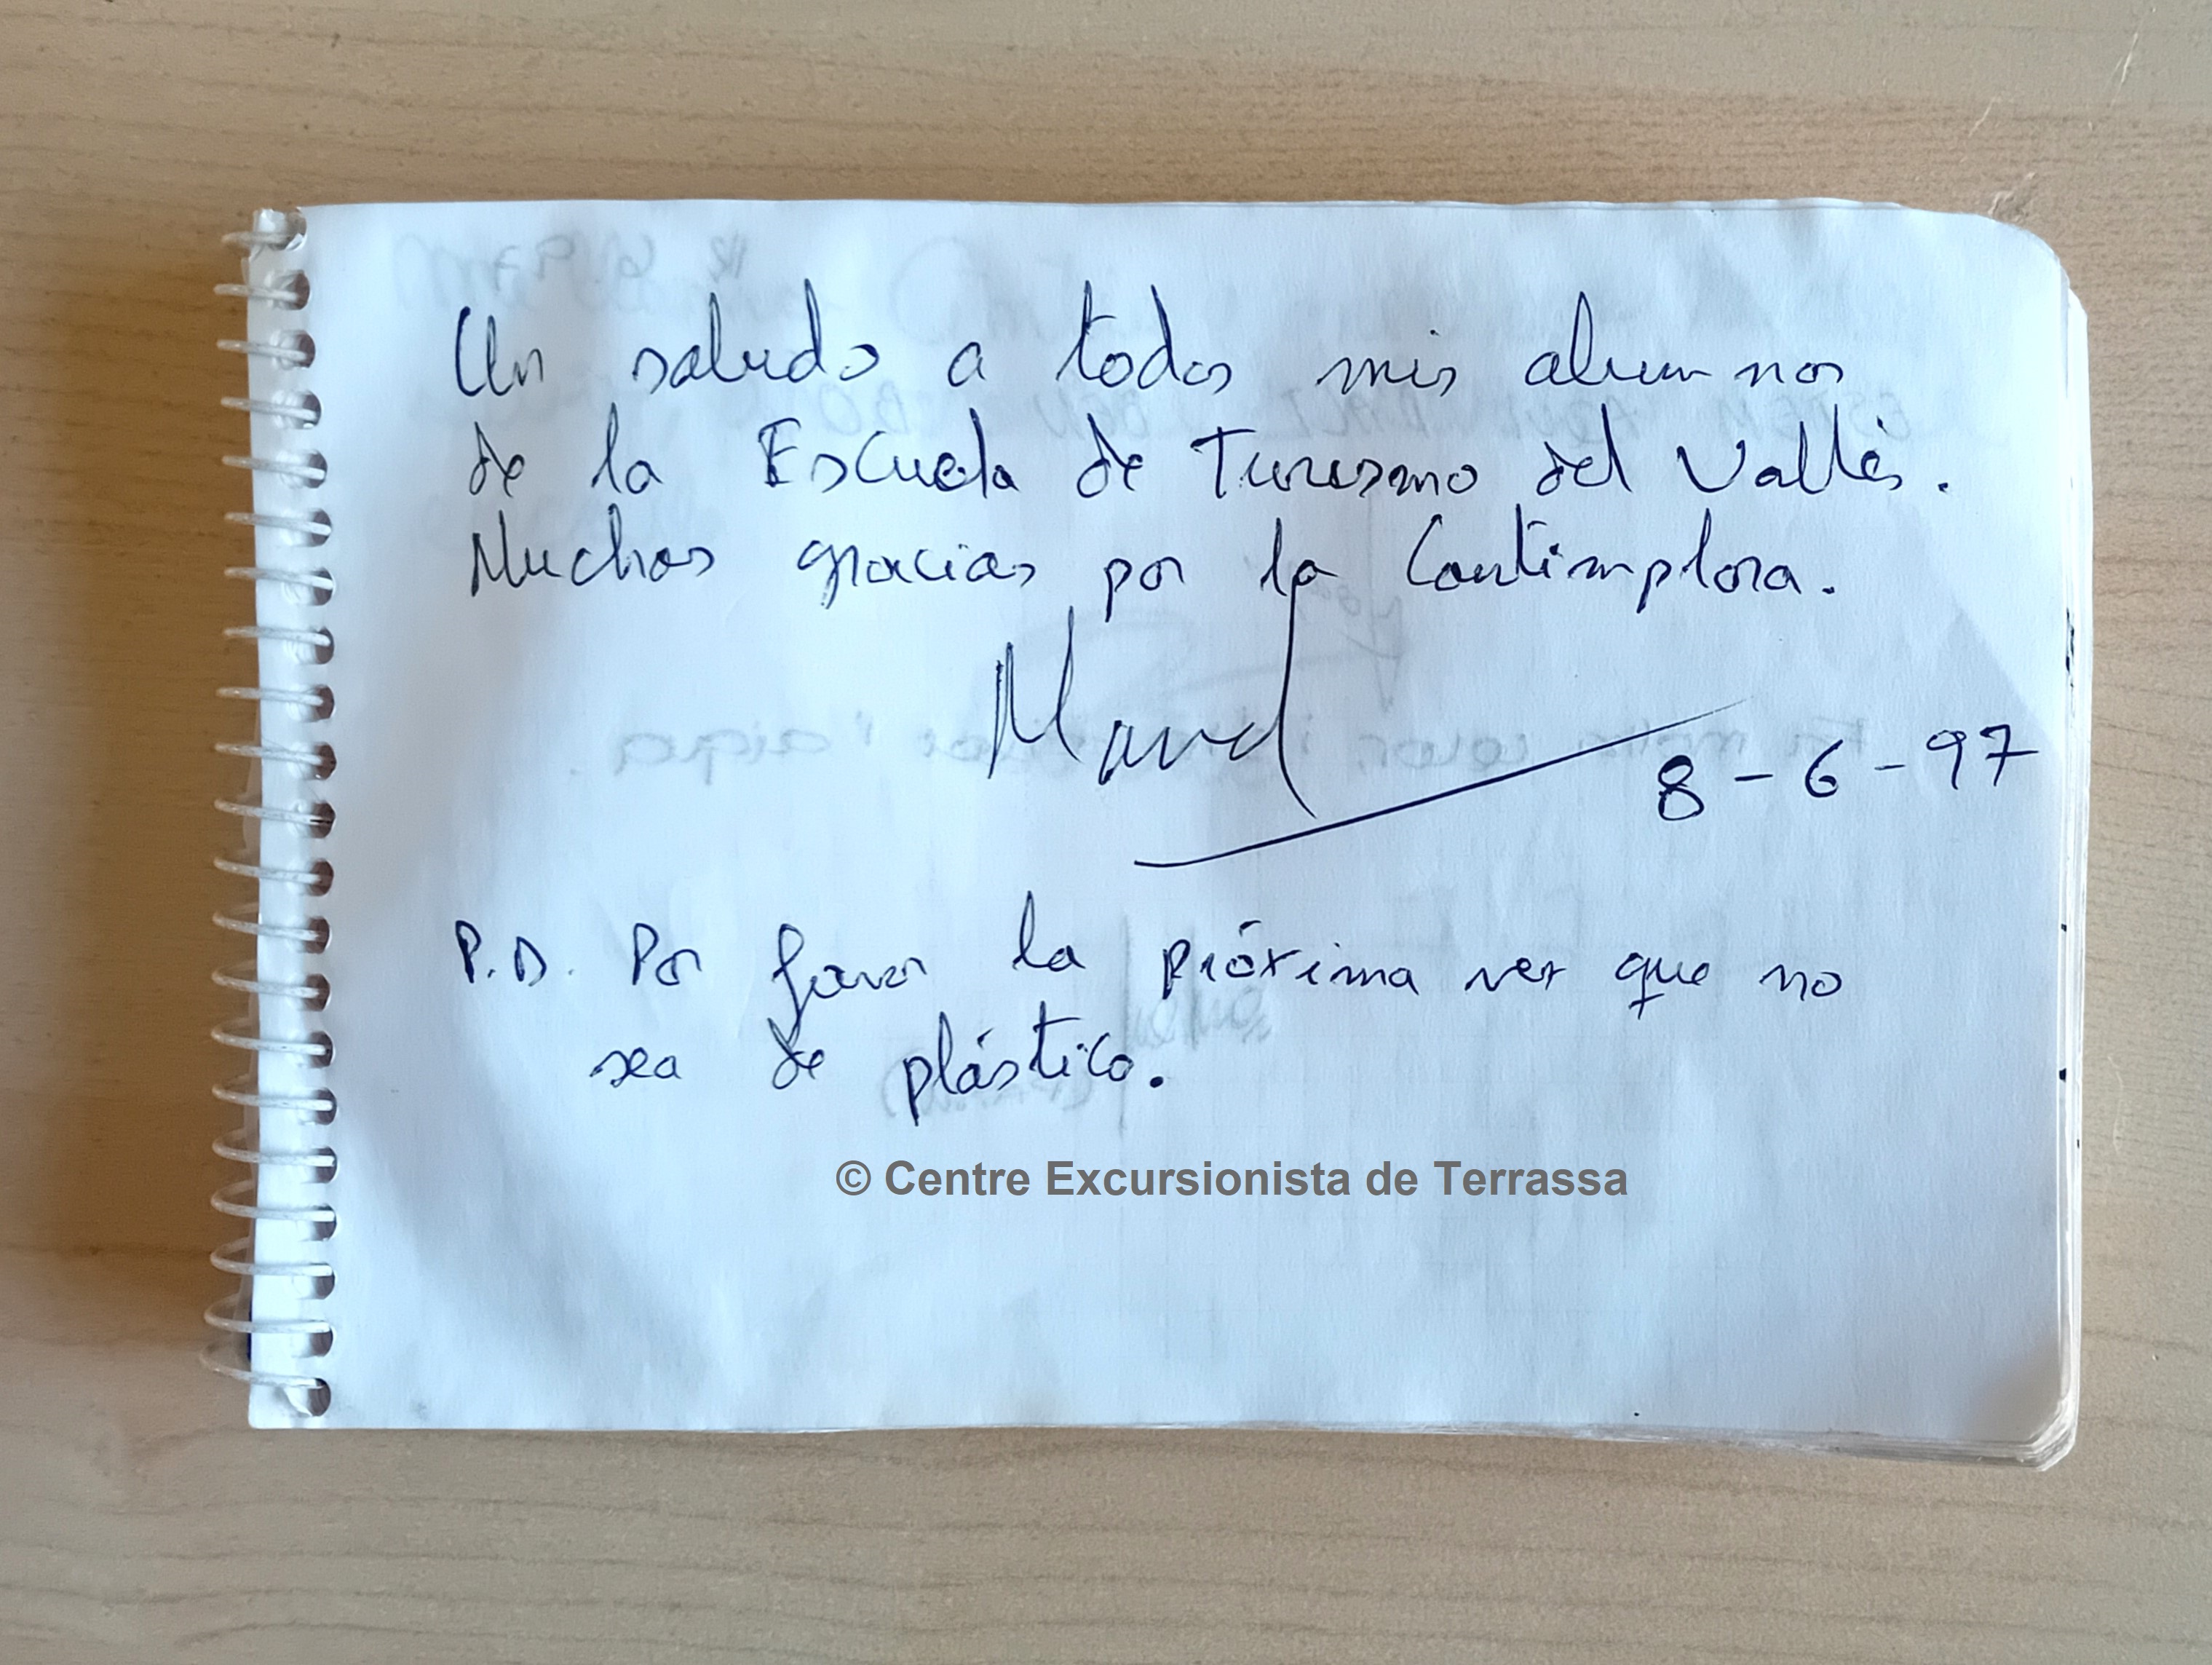 Un saludo a todos mis alumnos
de la Escuela de Turismo del Vallés.
Muchas gracias por la Cantimplora.
Manel
8-6-97
P.D. Por favor la próxima vez que no
sea de plástico.
© Centre Excursionista de Terrassa